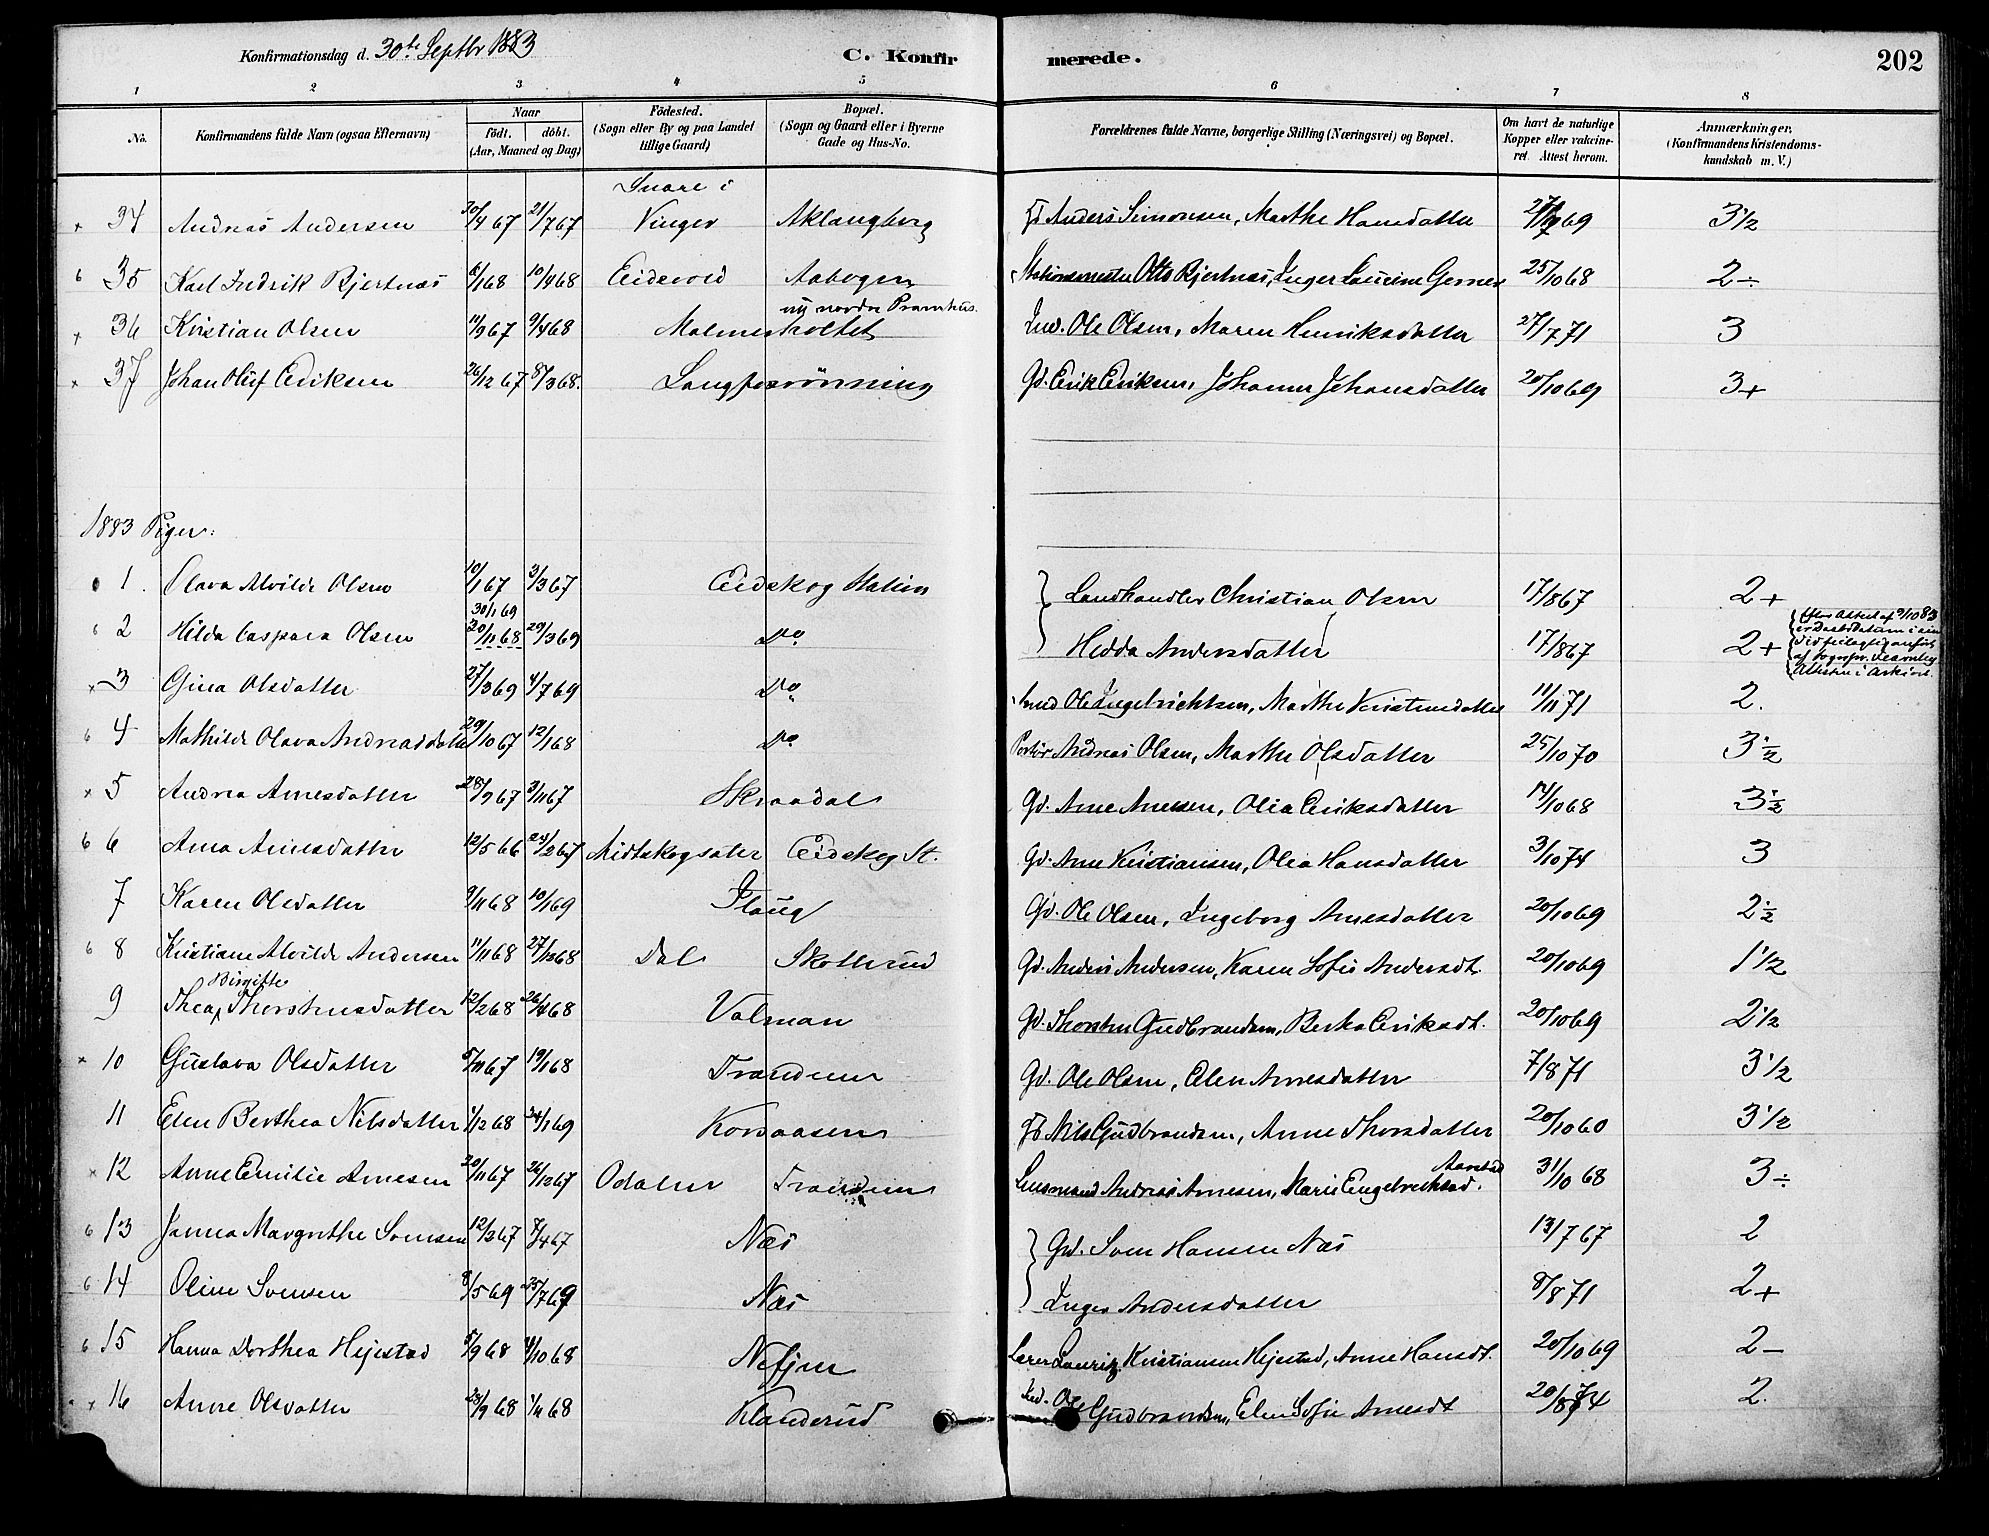 Konfirmationsdag d. 30te Septbr 1883
C. Konfirmerede.
202
1 2 3 4 5 6 7 8
No. Konfirmandens fulde Navn (ogsaa Efternavn) Naar født. døbt. (Aar, Maaned og Dag) Fødested. (Sogn eller By og paa Landet tillige Gaard) Bopæl. (Sogn og Gaard eller i Byerne Gade og Hus-No. Forældrenes fulde Navne, borgerlige Stilling (Næringsvei) og Bopæl. Om havt de naturlige Kopper eller vakcineret. Attest herom. Anmærkninger. (Konfirmandens Kristendomskundskab m. V.)
34 Andreas Andersen 30/4 67 21/7 67 Snare i Vinger Aklangberg Anders Simonsen, Marthe Hansdatter 69 3 1/2
35 Karl Fredrik Bjertnæs 8/1 68 10/4 68 Eidsvold Aabogen Stationsmester Otto Bjertnæs, Inger Laurine Gernes 25/10 68 2÷
36 Kristian Olsen 11/9 67 9/4 68 Malmerkoltet ny nordre Pramhus. Ind. Ole Olsen, Maren Henriksdatter 27/7 71 3
37 Johan Oluf Eriksen 26/12 67 8/3 68. Langforrønning Gd. Erik Eriksen, Johanne Johansdatter 20/10 69 3+
1883 Piger:
1. Olava Alvilde Olsen 10/1 67 3/3 67 Eidskog Station Landhandler Christian Olsen 17/8 67 2+
2 Hilda Caspara Olsen 30/1 69 20/11 68 29/3 69 Do Hedda Andersdatter 17/8 67 2+ Efter Attest af 9/10 83
3 Gina Olsdatter 27/3 69 4/7 69 Do Ind Ole Ingebrichtsen, Marthe Kristensdatter 11/11 71 2.
4 Mathilde Olava Andreasdatter 29/10 67 12/1 68 Do Portør Andreas Olsen, Marthe Olsdatter 25/10 70 3 ½
5 Andrea Arnesdatter 28/9 67 3/11 67 Skraadal Gd. Arne Arnesen, Olea Eriksdatter 14/10 68 3 ½
6 Anna Arnesdatter 12/5 66 24/2 67 Midtskogsæter Eidskog St. Gd. Arne Kristiansen, Olea Hansdatter 3/10 74 3
7 Karen Olsdatter 9/11 68 10/1 69 Flaug Gd. Ole Olsen, Ingeborg Arnesdatter 20/10 69 2 ½
8 Kristiane Alvilde Andersen 11/11 68 27/12 68 Dal Skotterud Gd. Anders Andersen, Karen Sofie Andersdt. 20/10 69 1 1/2
9 Thea Birgitte Thorstensdatter 12/2 68 26/4 68 Valman Gd. Thorsten Gudbrandsen, Berta Eriksdt. 20/10 69 2 1/2
10 Gustava Olsdatter 5/11 67 19/1 68 Trandem Gd. Ole Olsen, Elen Arnesdatter 7/8 71 3 1/2
11 Elen Berthea Nilsdatter 1/12 68 24/1 69 Korsaasen Nils Gudbrandsen, Anne Thorsdatter 20/10 60 3 1/2
12 Anne Emilie Arnesen 20/11 67 26/12 67 Odalen Trandem Lensmand Andreas Arnesen, Marie Engebrechtsd. 31/10 68 3÷
13 Janna Margrethe Svensen 12/2 67 8/4 67 Næs Gd. Sven Hansen Næs 13/7 67 2
14 Oline Svensen 8/5 69 25/7 69 Næs Inger Andersdatter 8/8 71 2+
15 Hanna Dorthea Hejestad 5/9 68 4/10 68 Nefjen Lærer Lauritz Kristiansen Hejestad, Anne Hansdt. 20/10 69 2-
16 Anne Olsdatter 23/9 68 1/11 68 Klanderud Ole Gudbrandsen, Elen Sofie Arnesdt 20/8 74 2.